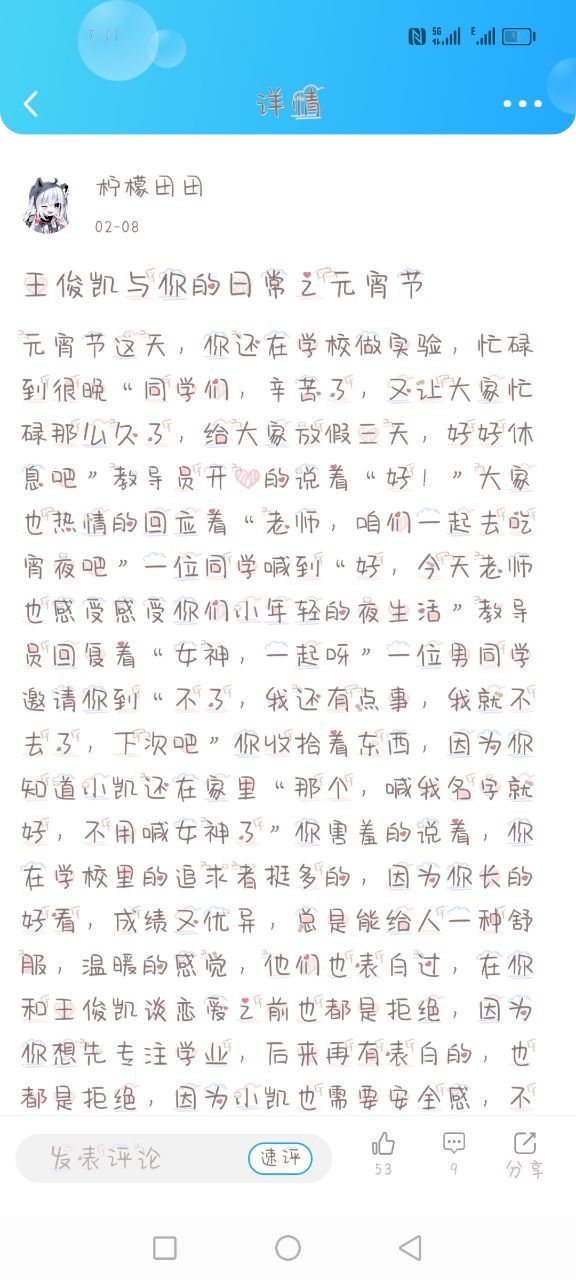 7:11
5G
E
详情
柠檬田田
02-08
王俊凯与你的日常之元宵节
元宵节这天，你还在学校做实验，忙碌
到很晚“同学们，辛苦了，又让大家忙
碌那么久了，给大家放假三天，好好休
息吧”教导员开❤的说着“好！”大家
也热情的回应着“老师，咱们一起去吃
宵夜吧”一位同学喊到“好，今天老师
也感受感受你们小年轻的夜生活”教导
员回复着“女神，一起呀”一位男同学
邀请你到“不了，我还有点事，我就不
去了，下次吧”你收拾着东西，因为你
知道小凯还在家里“那个，喊我名字就
好，不用喊女神了”你害羞的说着，你
在学校里的追求者挺多的，因为你长的
好看，成绩又优异，总是能给人一种舒
服，温暖的感觉，他们也表白过，在你
和王俊凯谈恋爱之前也都是拒绝，因为
你想先专注学业，后来再有表白的，也
都是拒绝，因为小凯也需要安全感，不
发表评论
速评
53
9
分享